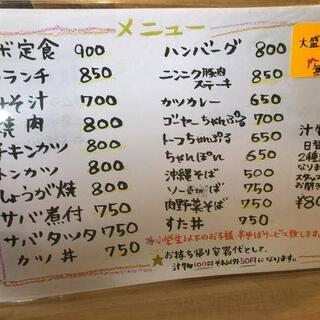 メニュー
ボ定食 900
ランチ 850
みそ汁 700
焼肉 800
チキンカツ 800
トンカツ 800
しょうが焼 800
サバ煮付 750
サバタツタ 750
カツ丼 750
ハンバーグ 800
ニンニク豚肉ステーキ 850
カツカレー 650
ゴーヤーちゃんぷるー 700
トーフちゃんぷるー 650
ちゃんぽん 650
沖縄そば 500
ソーキそば 750
肉野菜そば 750
すた丼 750
小学生以下のお子様、半そばサービス致します。
お持ち帰り容器代として、
汁物100円それ以外50円になります。
大盛
汁物
日替
2種
なりま
スタッフ
お聞き
¥80